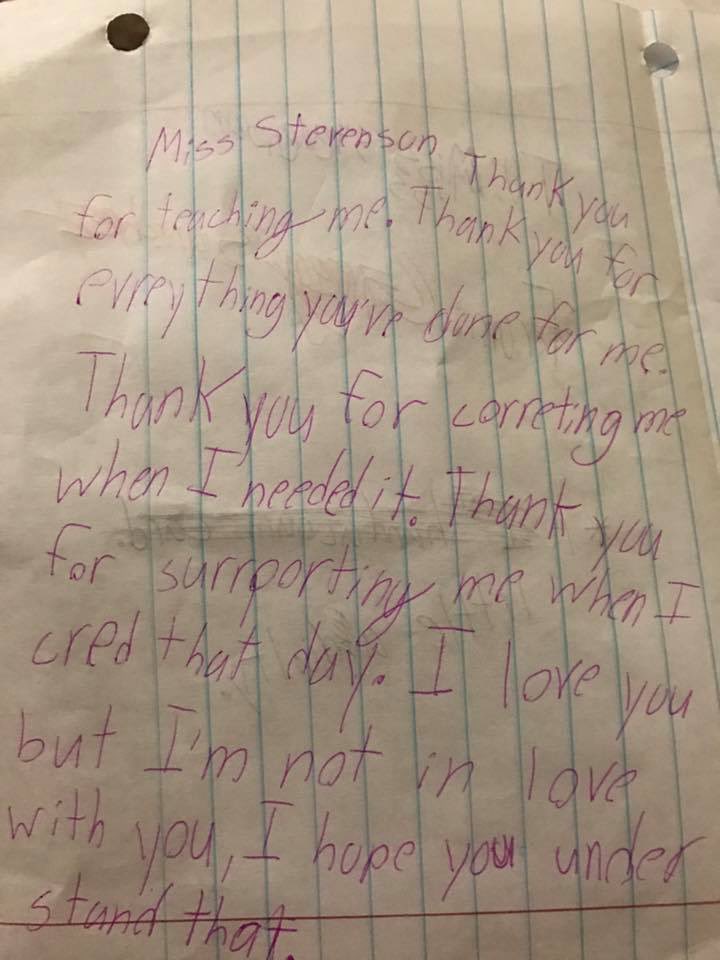 Miss Stevenson Thank you
for teaching me. Thank you for
evreything you've done for me.
Thank you for correting me
when I needed it. Thank you
for surrporting me when I
cred that day. I love you
but I'm not in love
with you, I hope you under
stand that.